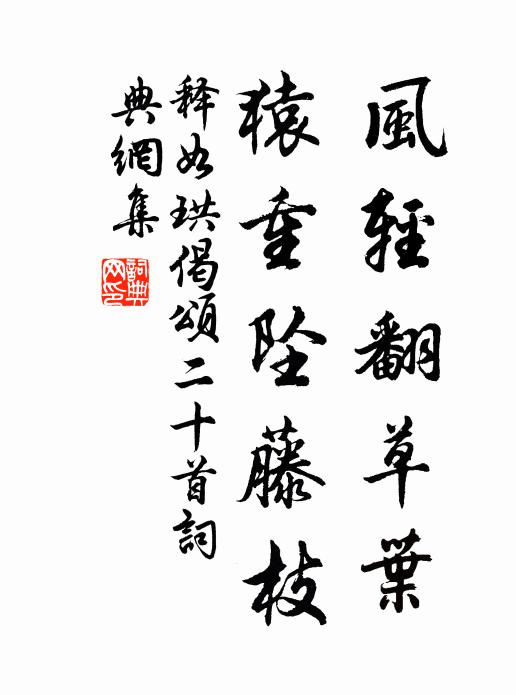 風輕翻草葉
猿重坠藤枝
释如珙偈頌二十首詞
典網集
詞典
网印